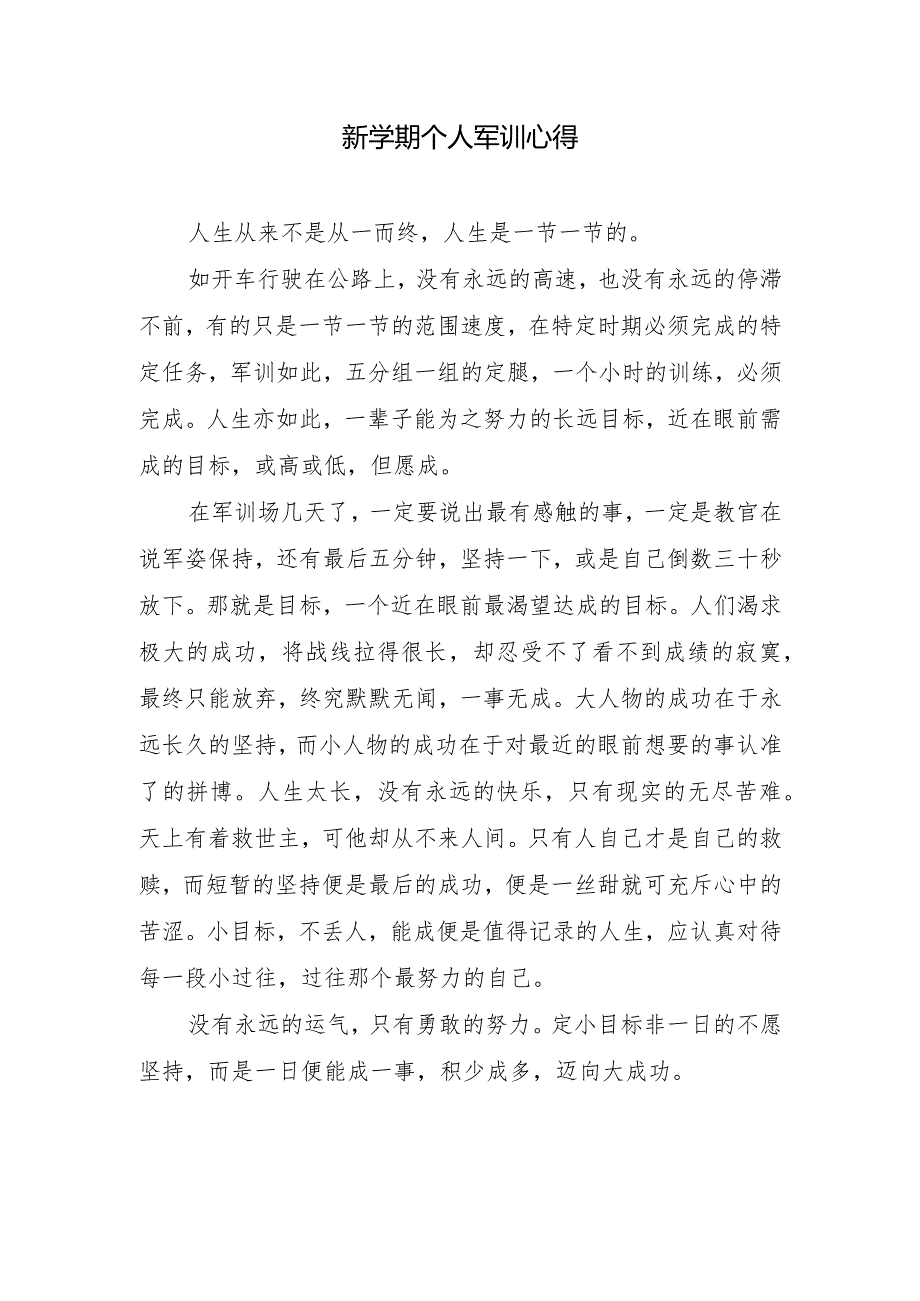 新学期个人军训心得
人生从来不是从一而终，人生是一节一节的。
如开车行驶在公路上，没有永远的高速，也没有永远的停滞
不前，有的只是一节一节的范围速度，在特定时期必须完成的特
定任务，军训如此，五分组一组的定腿，一个小时的训练，必须
完成。人生亦如此，一辈子能为之努力的长远目标，近在眼前需
成的目标，或高或低，但愿成。
在军训场几天了，一定要说出最有感触的事，一定是教官在
说军姿保持，还有最后五分钟，坚持一下，或是自己倒数三十秒
放下。那就是目标，一个近在眼前最渴望达成的目标。人们渴求
极大的成功，将战线拉得很长，却忍受不了看不到成绩的寂寞，
最终只能放弃，终究默默无闻，一事无成。大人物的成功在于永
远长久的坚持，而小人物的成功在于对最近的眼前想要的事认准
了的拼博。人生太长，没有永远的快乐，只有现实的无尽苦难。
天上有着救世主，可他却从不来人间。只有人自己才是自己的救
赎，而短暂的坚持便是最后的成功，便是一丝甜就可充斥心中的
苦涩。小目标，不丢人，能成便是值得记录的人生，应认真对待
每一段小过往，过往那个最努力的自己。
没有永远的运气，只有勇敢的努力。定小目标非一日的不愿
坚持，而是一日便能成一事，积少成多，迈向大成功。